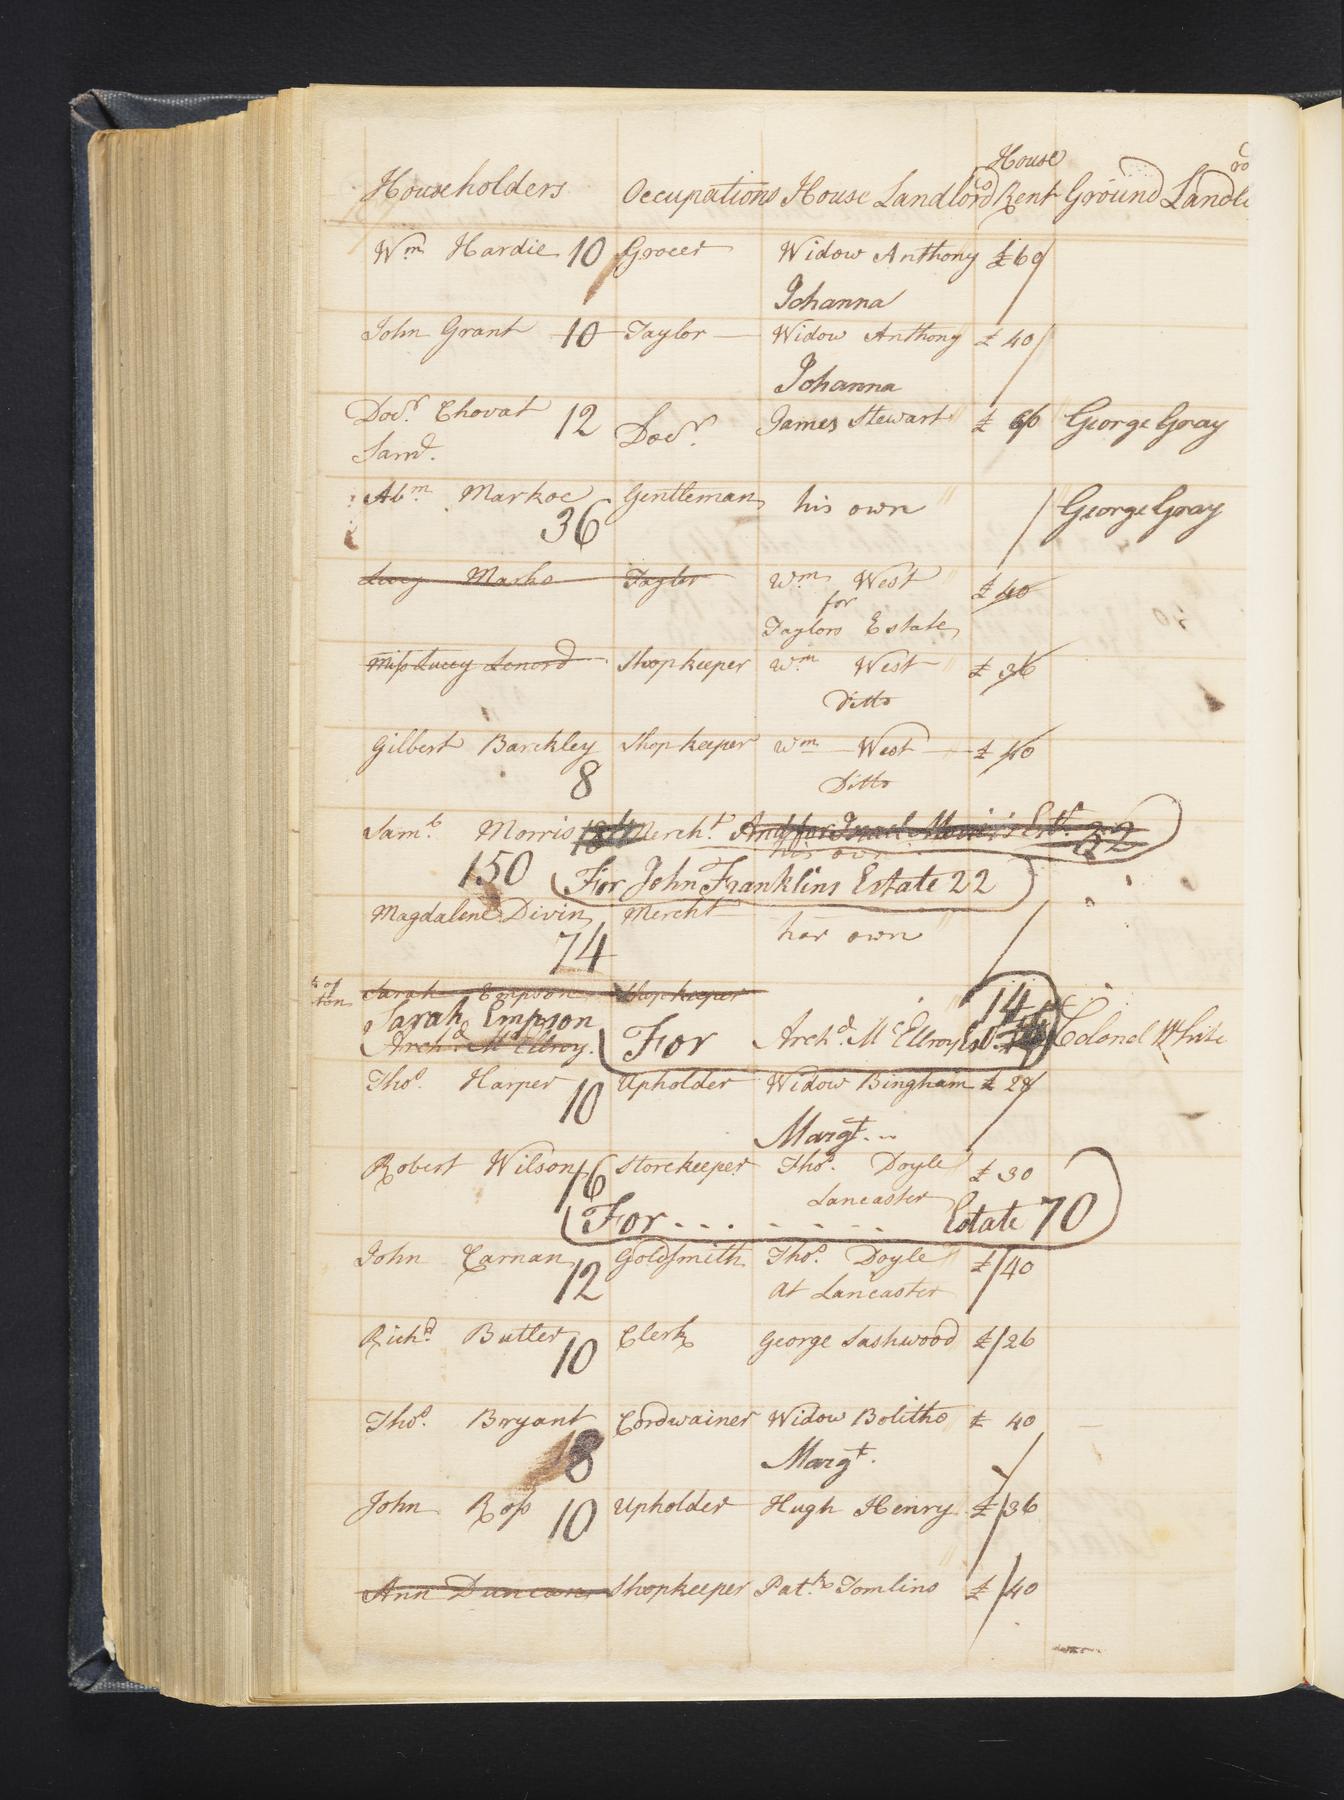 House
Householders Occupations House Landlord Rent Ground Landlo
Wm Hardie 10 Grocer Widow Anthony £60
Johanna
John Grant 10 Taylor Widow Anthony £ 40
Johanna
Docr. Chovat 12 Docr. James Stewart £ 60 George Gray
Saml.
Abm Markoe Gentleman his own George Gray
36
Lucy Marko Taylor Wm West £ 40
for
Taylors Estate
Miss Lucey Lenord Shopkeeper Wm West £ 36
Ditto
Gilbert Barckley Shopkeeper Wm West £ 40
8 Ditto
Saml. Morris Mercht And for Israel Morris's Este. 22
his own
150 For John Franklins Estate 22
Magdalene Divin Mercht her own
74
Sarah Empson Shopkeeper 14
Sarah Empson
Archd. McEllroy For Archd. McEllroy Est. Colonel White
Thos. Harper 10 Upholder Widow Bingham £ 28
Margt.
Robert Wilson 16 Storekeeper Thos. Doyle £ 30
Lancaster
For . . . . . . . Estate 70
John Carnan 12 Goldsmith Thos. Doyle £ 40
at Lancaster
Richd Butler 10 Clerk George Sashwood £ 26
Thos. Bryant Cordwainer Widow Bolitho £ 40
8 Margt.
John Ross 10 Upholder Hugh Henry £ 36
Ann Duncan Shopkeeper Patk Tomlins £ 40